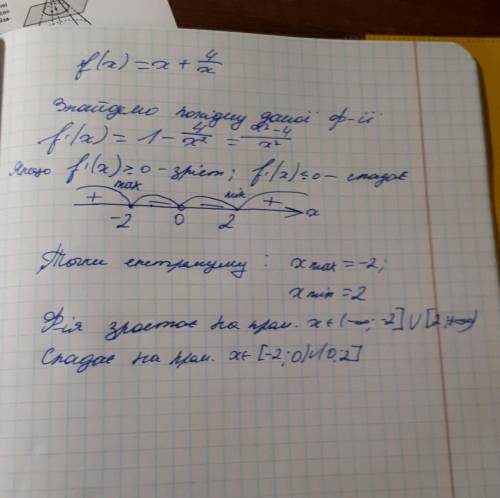 f(x) = x + 4/x
Знайдемо похідну даної ф-ії
f'(x) = 1 - 4/x² = x²-4/x²
Якщо f'(x) ≥ 0 - зріст; f'(x) ≤ 0 - спадає
max min
+ - - +
-2 0 2 x
Точки екстремуму : x max = -2;
x min = 2
Ф-ія зростає на пром. x ∈ (-∞; -2] ∪ [2; +∞)
Спадає на пром. x ∈ [-2; 0) ∪ (0; 2]